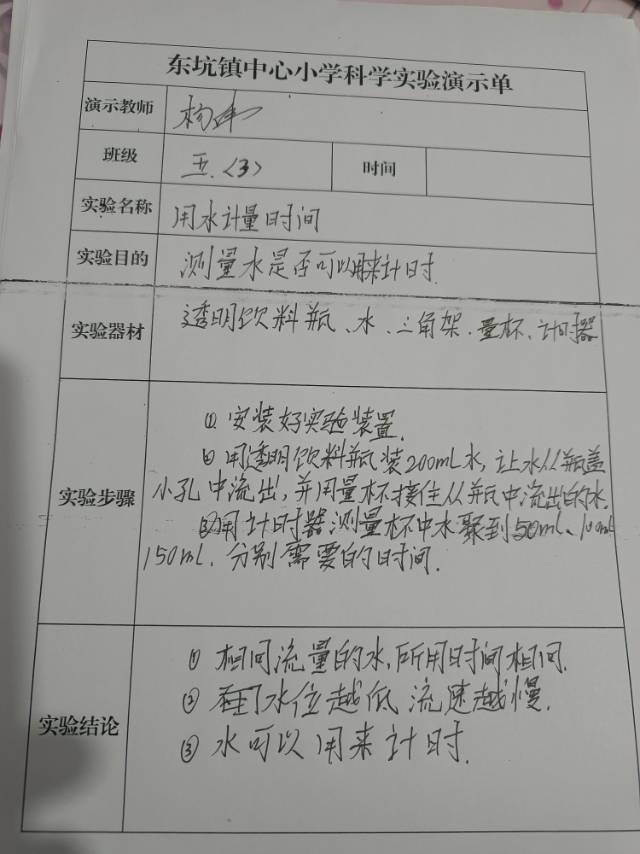 东坑镇中心小学科学实验演示单
演示教师
班级 五.〈3〉 时间
实验名称 用水计量时间
实验目的 测量水是否可以用来计时.
实验器材 透明饮料瓶、水、三角架.量杯、计时器
实验步骤
① 安装好实验装置.
② 用透明饮料瓶装200mL水,让水从瓶盖
小孔中流出,并用量杯接住从瓶中流出的水.
③用计时器测量杯中水聚到50mL、100mL
150mL.分别需要的时间.
实验结论
① 相同流量的水,所用时间相同.
② 水位越低 流速越慢.
③ 水可以用来计时.